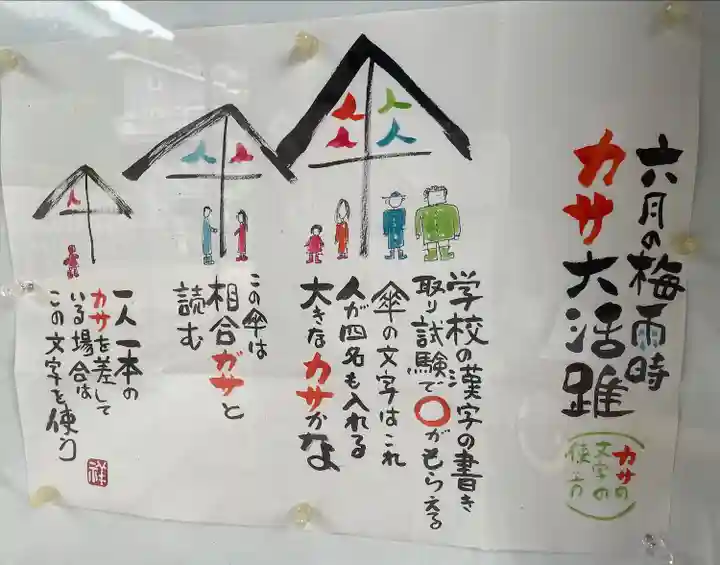 六月の梅雨時
カサ大活躍
(カサの
文字の
使い方)
学校の漢字の書き
取り試験で〇がもらえる
傘の文字はこれ
人が四名も入れる
大きなカサかな
この傘は
相合ガサと
読む
一人一本の
カサを差して
いる場合は
この文字を使う
祥